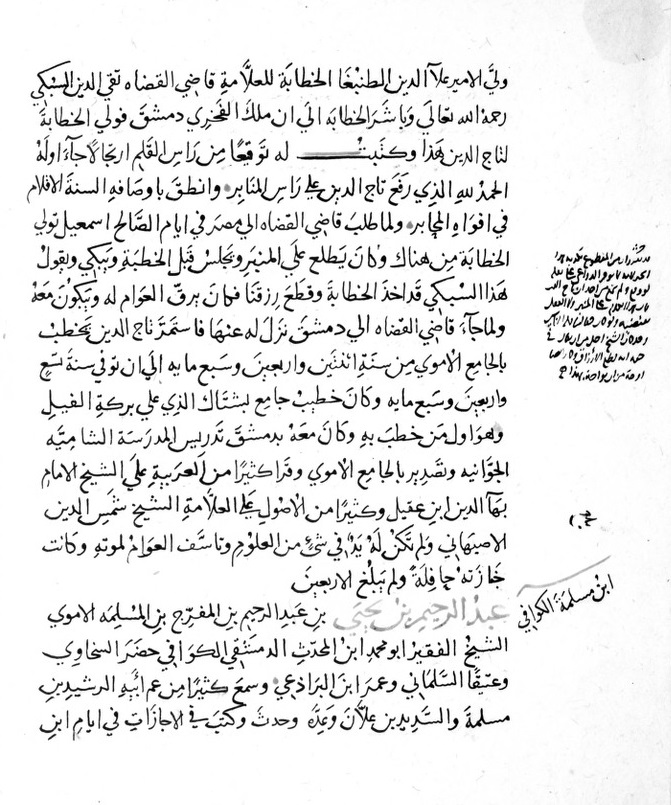 ولي الامير علاآ الدين الطنبغا الخطابة للعلامة قاضي القضاه تقي الدين السبكي
رحمه الله تعالي وباشر الخطابه الي ان ملك الفخري دمشق فولي الخطابة
لتاج الدين هذا وكتبت له توقيعا من راس القلم ارتجالا جآء اوله
الحمد لله الذي رفع تاج الدين علي راس المنابر وانطق باوصافه السنة الاقلام
في افواه المحابر ولما طلب قاضي القضاه الي مصر في ايام الصالح اسمعيل تولي
الخطابة من هناك وكان يطلع علي المنبر ويجلس قبل الخطبة ويبكي ويقول
هذا السبكي قد اخذ الخطابة وقطع رزقنا فكان يرق العوام له ويكون معه
ولما جآء قاضي القضاه الي دمشق نزل له عنها فاستمر تاج الدين يخطب
بالجامع الاموي من سنة اثنتين واربعين وسبع مايه الي ان توفي سنة تسع
واربعين وسبع مايه وكان خطيب جامع بشتاك الذي علي بركة الفيل
وهو اول من خطب به وكان معه بدمشق تدريس المدرسة الشاميه
الجوانيه وتصدير بالجامع الاموي وقرا كثيرا من العربية علي الشيخ الامام
بهآ الدين ابن عقيل وكثيرا من الاصول علي العلامة الشيخ شمس الدين
الاصبهاني ولم تكن له يد في شئ من العلوم وتاسف العوام لموته وكانت
جنازته حافلة ولم يبلغ الاربعين
ابن مسلمة الكوافي
عبد الرحيم بن يحيي بن عبد الرحيم بن المفرج بن المسلمه الاموي
الشيخ الفقير ابو محمد ابن المحدث الدمشقي الكوافي حضر السخاوي
وعتيقا السلماني وعمر ابن البراذعي وسمع كثيرا من عم ابيه الرشيد بن
مسلمة والسديد بن علان وعدة وحدث وكتب في الاجازات في ايام ابن